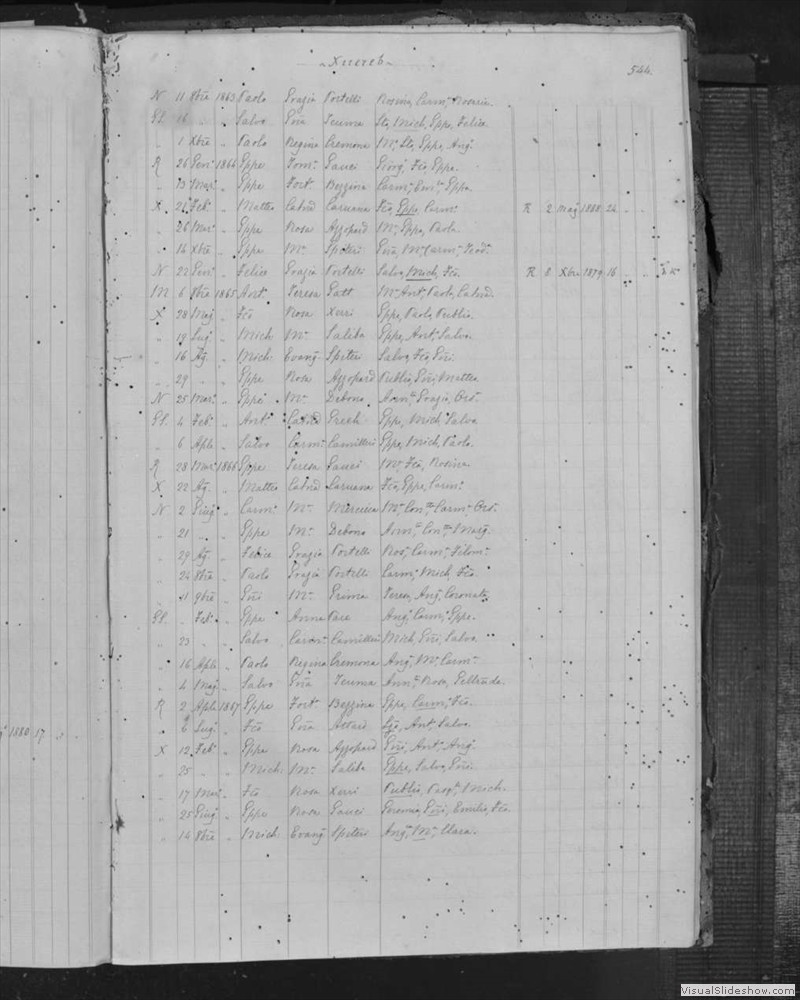 Xuereb
544.
N 11 8bre 1863 Paolo Grazia Portelli Rosina, Carm: Rosaria.
16 " Salvo Gña Teuma Mich, Gppe, Felice
" 1 Xbre " Paolo Regina Cremona Ma, Gppe, Ang:
R 26 Gen: 1864 Gppe Tom: Sauci Giorg: Fco, Gppe.
" 13 Mar: " Gppe Fort: Bezzina Carm: Gppe.
X 21 Feb: " Matteo Catna Caruana Fco, Gppe, Carm: R 2 Mag 1888 24
" 26 Mar: " Gppe Rosa Azzopard Ma, Gppe, Paolo
" 14 Xbre " Gppe Ma Spiteri Ma Carm: Teod:
N 22 Gen: " Felice Grazia Portelli Salvo, Mich, Fco. R 8 Xbre 1879 16
M 6 8bre 1865 Ant: Teresa Gatt Ma Ant: Paolo, Catna
X 28 Mag " Fco Rosa Xerri Gppe, Paolo, Publio.
" 19 Lug " Mich Ma Saliba Gppe, Ant: Salvo
" 16 Ag. " Mich Evang Spiteri Salvo, Fco, Gni.
" 29 " " Gppe Rosa Azzopard Publio, Gni, Matteo
N 25 Mar: " Gppe Ma Debono Ann: Grazia, Ors:
4 Feb: " Ant: Catna Grech Gppe, Mich, Salvo
" 6 Aple " Salvo Carm: Camilleri Gppe, Mich, Paolo.
R 28 Mar: 1866 Gppe Teresa Sauci Ma, Fco, Rosina.
X 22 Ag. " Matteo Catna Caruana Fco, Gppe, Carm:
N 2 Giug " Carm: Ma Mercieca Ma Con: Carm: Ors:
" 21 " " Gppe Ma Debono Ann: Con: Marg.
" 29 Ag " Felice Grazia Portelli Ros: Carm: Filom:
" 24 8bre " Paolo Grazia Portelli Carm: Mich, Fco.
" 21 9bre " Gni Ma Grima Teresa, Ang: Coronata
" Feb: " Gppe Anna Pace Ang: Carm: Gppe.
" 23 " " Salvo Carm: Camilleri Mich, Gni, Salvo
" 16 Aple " Paolo Regina Cremona Ang: Ma, Carm:
" 4 Mag " Salvo Gña Teuma Ann: Rosa, Geltrude.
R 2 Aple 1867 Gppe Fort: Bezzina Gppe, Carm: Fco.
" 6 Lug: " Fco Gña Attard Ant: Salvo.
X 12 Feb: " Gppe Rosa Azzopard Gni, Ant: Ang:
" 25 " " Mich. Ma Saliba Gppe, Salvo, Gni.
" 17 Mar: " Fco Rosa Xerri Publio, Pasq: Mich.
" 25 Giug " Gppe Rosa Sauci Gni, Emilio, Fco.
" 14 8bre " Mich Evang Spiteri Ang: Ma, Clara.
1880 17
VisualSlideshow.com